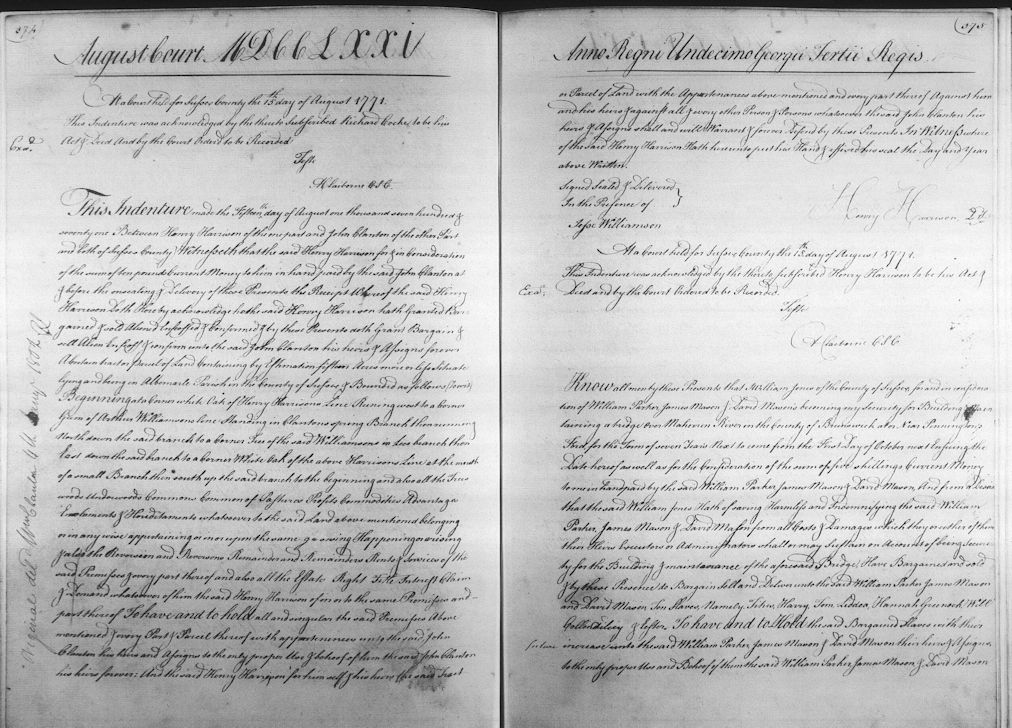 374
August Court MDCCLXXI
At a Court held for Sussex County the 15th day of August 1771.
This Indenture was acknowledged by the thereto Subscribed Richard Cocke, to be his
Act & Deed And by the Court Ordered to be Recorded
Exd.
Teste
A Claiborne C S C.
This Indenture made the Fifteenth day of August one thousand seven hundred &
seventy one Between Henry Harrison of the one part and John Clanton of the other Part
and both of Sussex County Witnesseth that the said Henry Harrison for & in Consideration
of the sum of ten pounds Current Money to him in hand paid by the said John Clanton at
& before the ensealing & Delivery of these Presents the Receipt Whereof the said Henry
Harrison Doth Hereby acknowledge he the said Henry Harrison hath Granted Bar-
gained & sold Aliened Enfeoffed & Confirmed & by these Presents doth Grant Bargain &
sell Alien Enfeoff & confirm unto the said John Clanton his heirs & Assigns forever
A Certain tract or Parcel of Land Containing by Estimation fifteen Acres more or less situate
lying and being in Albemarle Parish in the County of Sussex & Bounded as follows
Beginning at a Corner white Oak of Henry Harrisons Line Runing west to a Corner
Gum of Arthur Williamsons line Standing in Clantons spring Branch then running
North down the said branch to a Corner Tree of the said Williamsons in branch then
East down the said branch to a Corner White Oak of the above Harrisons Line at the mouth
of a small Branch then south up the said branch to the beginning and also all the Trees
woods Underwoods Commons Common of Pasture Profits Commodities Advantages
Emoluments & Hereditaments whatsoever to the said Land above mentioned belonging
or in any wise appertaining or upon the same growing Happening or arising
& also the Reversion and Reversions Remainder and Remainders Rents & Services of the
said Premises & every part thereof and also all the Estate Right Title Interest Claim
& Demand whatsoever of him the said Henry Harrison of in or to the same Premises and
part thereof To have and to hold all and singular the said Premises Above
mentioned & every Part & Parcel thereof with appertenances unto the said John
Clanton his heirs and Assigns to the only proper Use & behoof of him the said John Clanton
his heirs forever: And the said Henry Harrison for himself & his heirs the said Tract
375
Anno Regni Undecimo Georgii Tertii Regis
or Parcel of Land with the Appertenances above mentioned and every part thereof Against him
and his heirs & against all & every other Person & Persons whatsoever the said John Clanton his
heirs & Assigns shall and will Warrant & forever Defend by these Presents In Witness where
of the Said Henry Harrison Hath hereunto put his Hand & affixed his seal the Day and Year
above Written.
Signed Sealed & Delivered
In the Presence of
Henry Harrison,
Jesse Williamson
At a Court held for Sussex County the 15th day of August 1771.
This Indenture was acknowledged by the thereto subscribed Henry Harrison to be his Act &
Deed and by the Court Ordered to be Recorded.
Exd.
Teste
A Claiborne C S C
Know all men by these Presents that William Jones of the County of Sussex for and in considera
tion of William Parker James Mason & David Mason's becoming my Security for Building & Main
taining a bridge over Maherrin River in the County of Brunswick at or Near Penningtons
Ford for the Term of seven Years Next to come from the First Day of October next Ensuing the
Date hereof as well as for the Consideration of the sum of five shillings Current Money
to me in hand paid by the said William Parker James Mason & David Mason And from
that the said William Jones Hath of saving Harmless and Indemnifying the said William
Parker, James Mason & David Mason from all Costs & Damages which they or either of them
their Heirs Executors or Administrators shall or may Sustain on Account of being Secur
ity for the Building & maintainance of the aforesaid Bridge, Have Bargained and sold
& by these Presents do Bargain Sell and Deliver unto the said William Parker James Mason
and David Mason Ten Slaves, Namely Peter, Harry, Tom, Liddea, Hannah Greenock, Will
& Ester. To have and to Hold the said Bargained Slaves with their
future increase unto the said William Parker James Mason & David Mason their heirs & Assigns
to the only proper Use and Behoof of them the said William Parker James Mason & David Mason